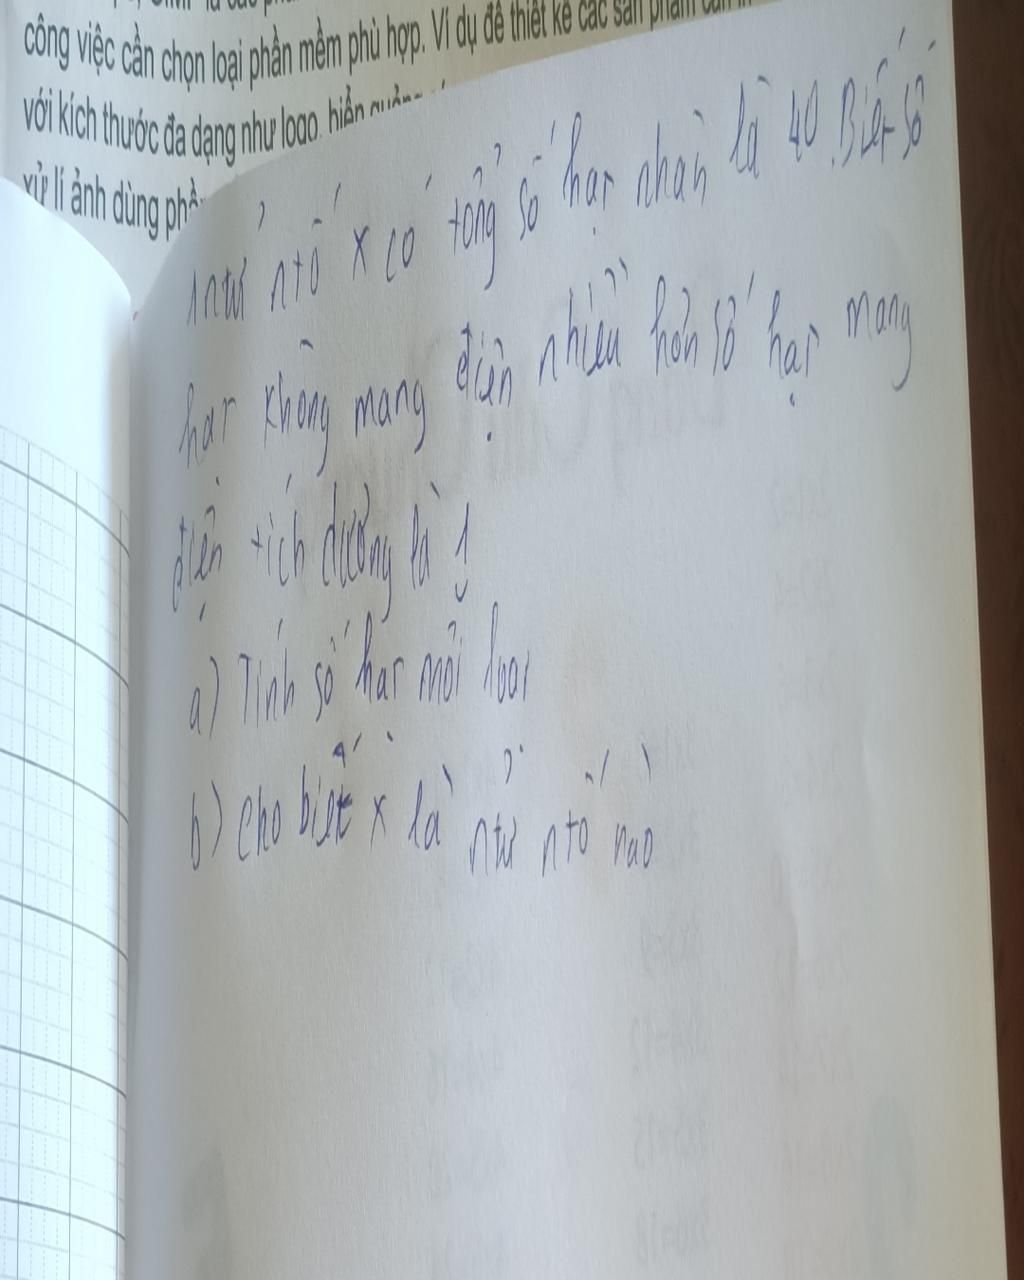 công việc cần chọn loại phần mềm phù hợp. Ví dụ để thiết kế các sản phẩm
với kích thước đa dạng như logo, biển quảng
xử lí ảnh dùng
1 ntử ntố x có tổng số hạt nhân là 40. Biết số
hạt không mang điện nhiều hơn số hạt mang
điện tích dương là 1
a) Tính số hạt mỗi loại
b) Cho biết x là ntử ntố nào